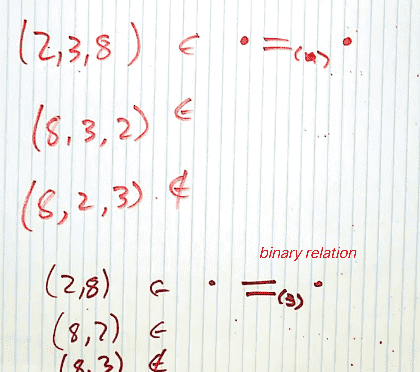 (2,3,8) ∈ • =(•) •
(8,3,2) ∈
(8,2,3) ∉
binary relation
(2,8) ∈ • =(3) •
(8,2) ∈
(8,3) ∉